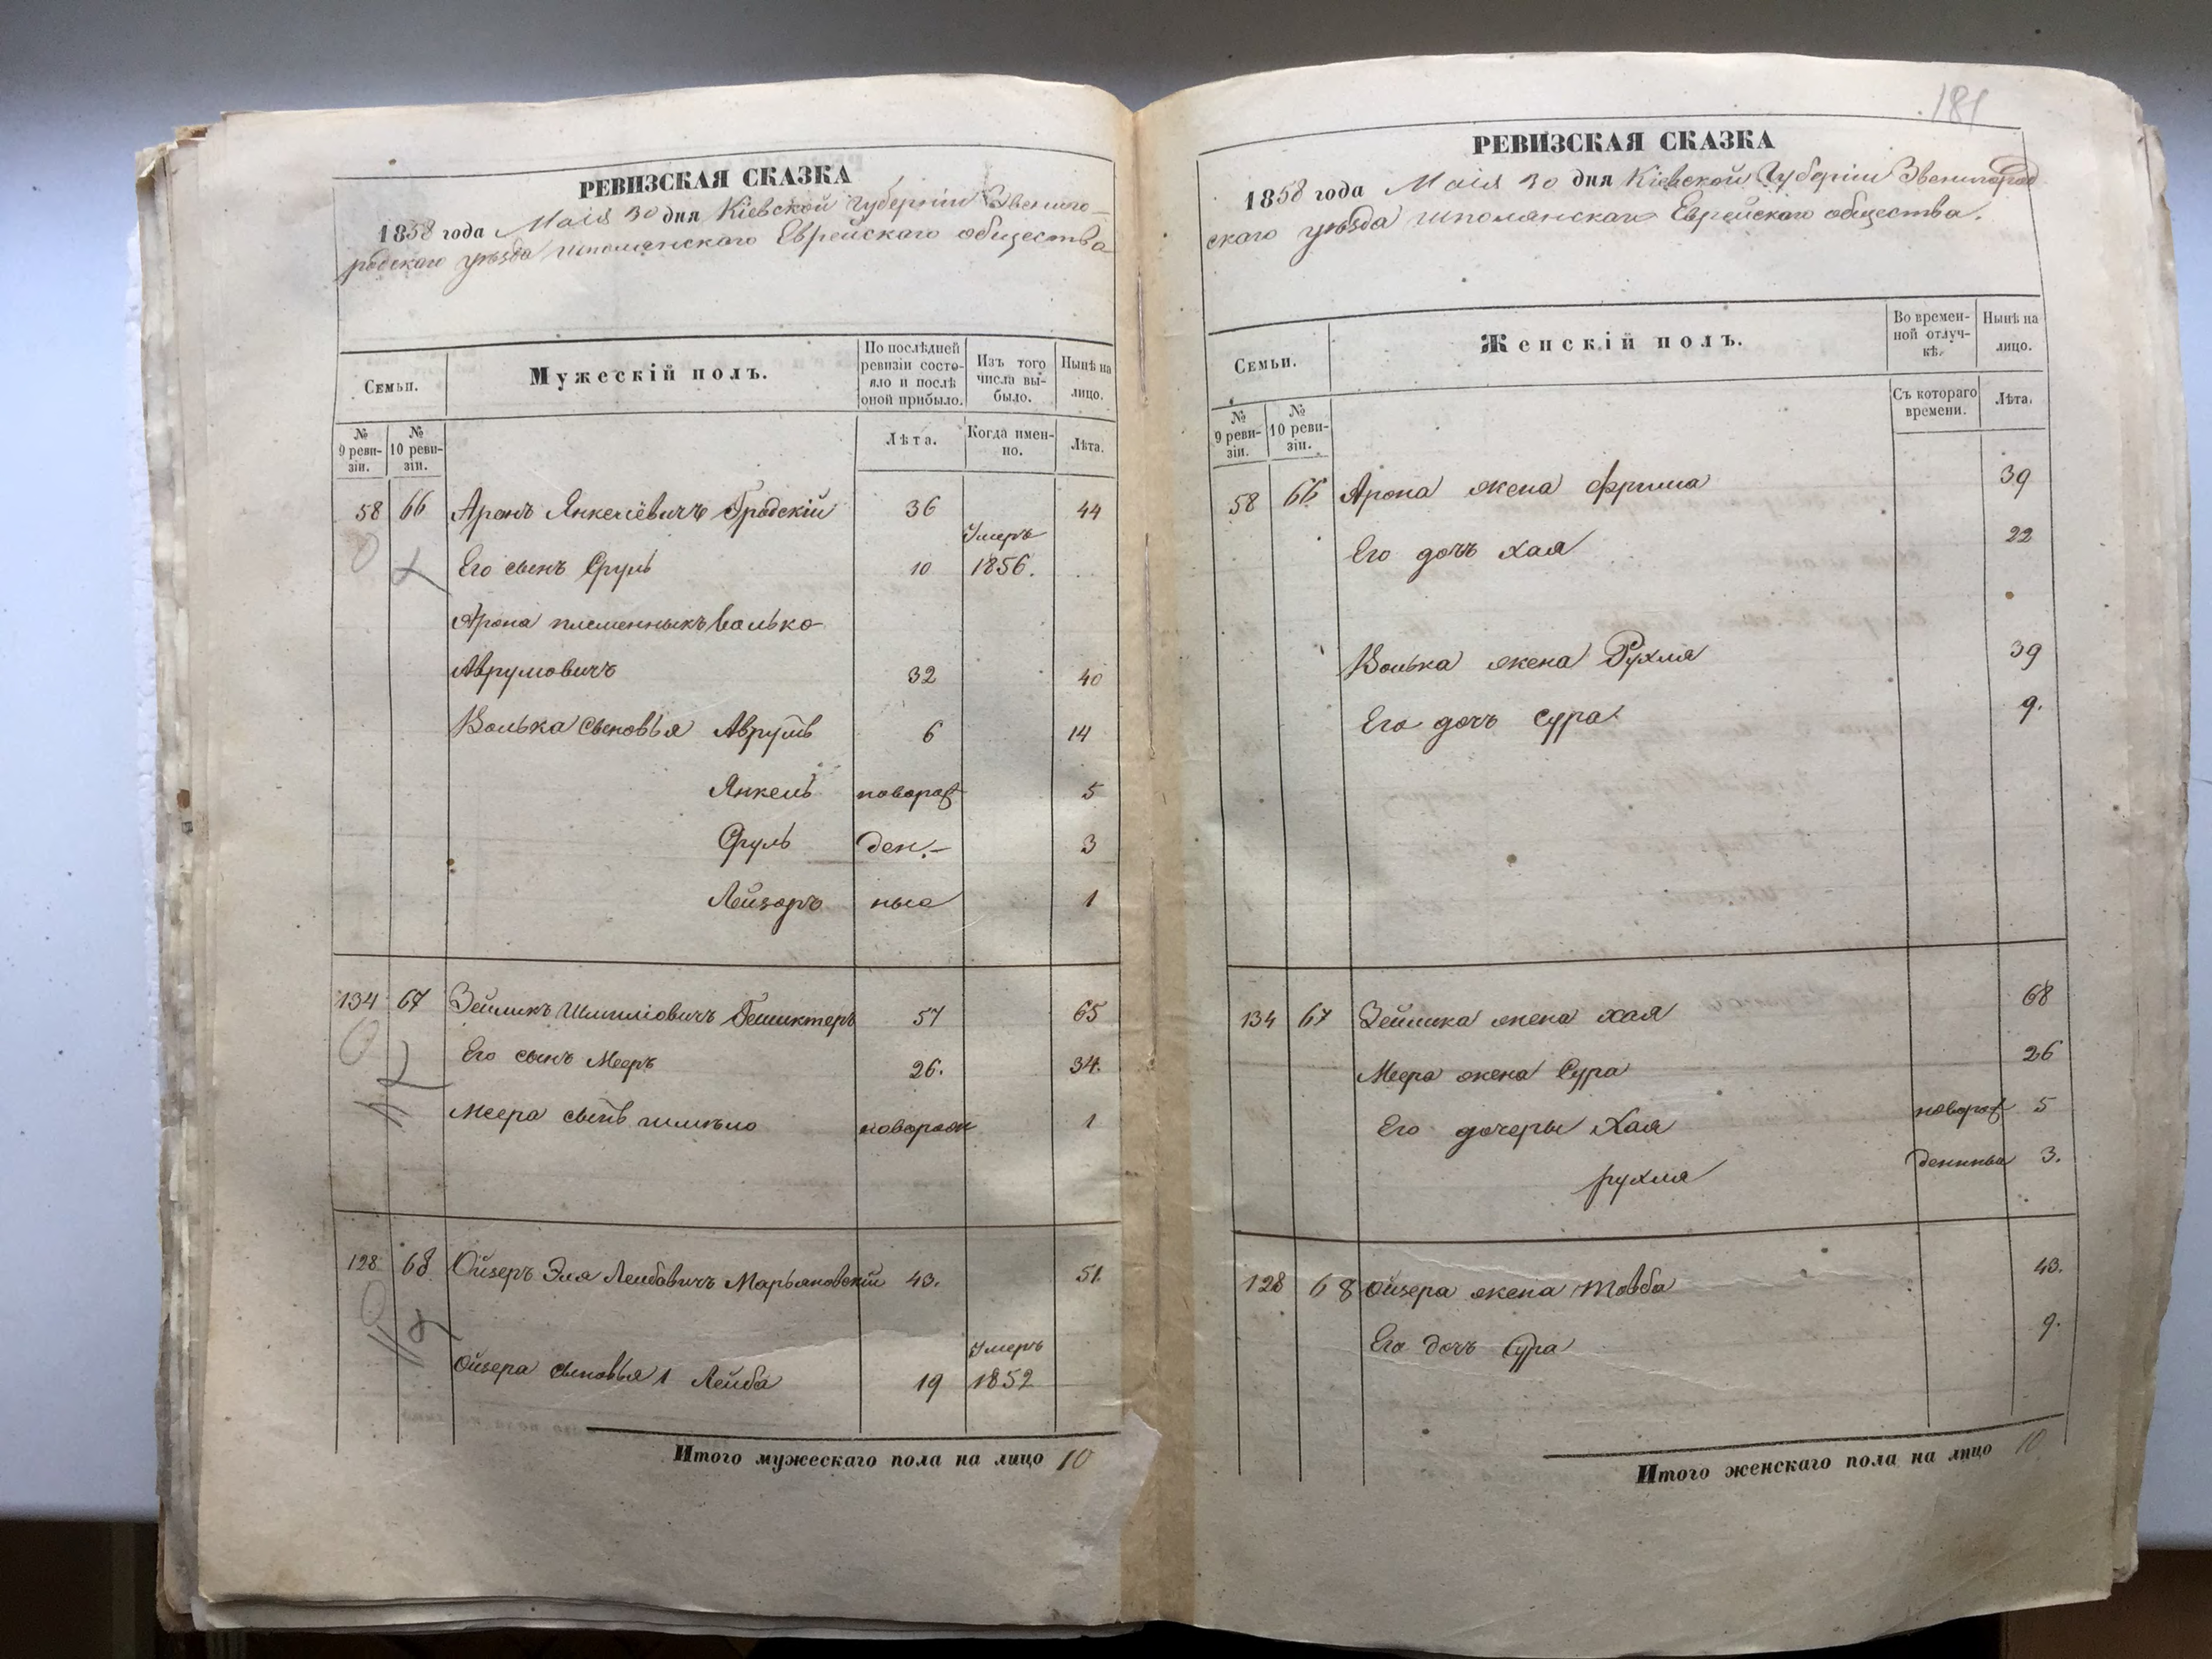 РЕВИЗСКАЯ СКАЗКА
1858 года Маія 30 дня Кіевской Губерніи Звениго-
родскаго уѣзда Шполянскаго Еврейскаго общества
Семьи.
Мужескій полъ.
По послѣдней ревизіи состо-яло и послѣ оной прибыло.
Изъ того числа вы-было.
Нынѣ на лицо.
№ 9 реви-зіи.
№ 10 реви-зіи.
Лѣта.
Когда имен-но.
Лѣта.
58 66 Аронъ Янкелёвичъ Гродскій 36 44
Его сынъ Сруль 10 Умеръ 1856.
Арона племенныкъ Волько
Аврумовичъ 32 40
Волька сыновья Аврумъ 6 14
Янкель новорож 5
Сруль ден.- 3
Лейзоръ ные 1
134 67 Зейликъ Шмиліовичъ 57 65
Его сынъ Мееръ 26. 34.
Меера сынъ новорож 1
128 68 Ойзеръ Эля Лейбовичъ Марьяновскій 43. 51.
Ойзера сыновья 1 Лейба 19 Умеръ 1852
Итого мужескаго пола на лицо 10
181
РЕВИЗСКАЯ СКАЗКА
1858 года Маія 30 дня Кіевской Губерніи Звенигород
скаго уѣзда Шполянскаго Еврейскаго общества.
Семьи.
Женскій полъ.
Во времен-ной отлуч-кѣ.
Нынѣ на лицо.
№ 9 реви-зіи.
№ 10 реви-зіи.
Съ котораго времени.
Лѣта.
58 66 Арона жена Фрима 39
Его дочь Хая 22
Волька жена Рухля 39
Его дочь Сура 9.
134 67 Зейлика жена Хая 68
Меера жена Сура 26
Его дочеры Хая новорож 5
рухля денныя 3.
128 68 Ойзера жена Товба 43.
Его дочь Сура 9.
Итого женскаго пола на лицо 10